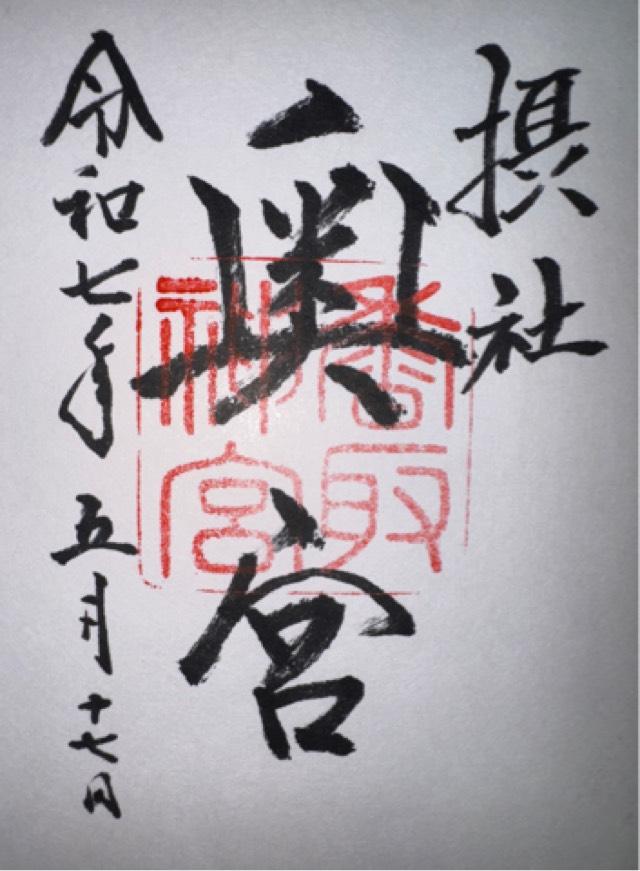 摂社
奥宮
香取
神宮
令和七年五月十七日